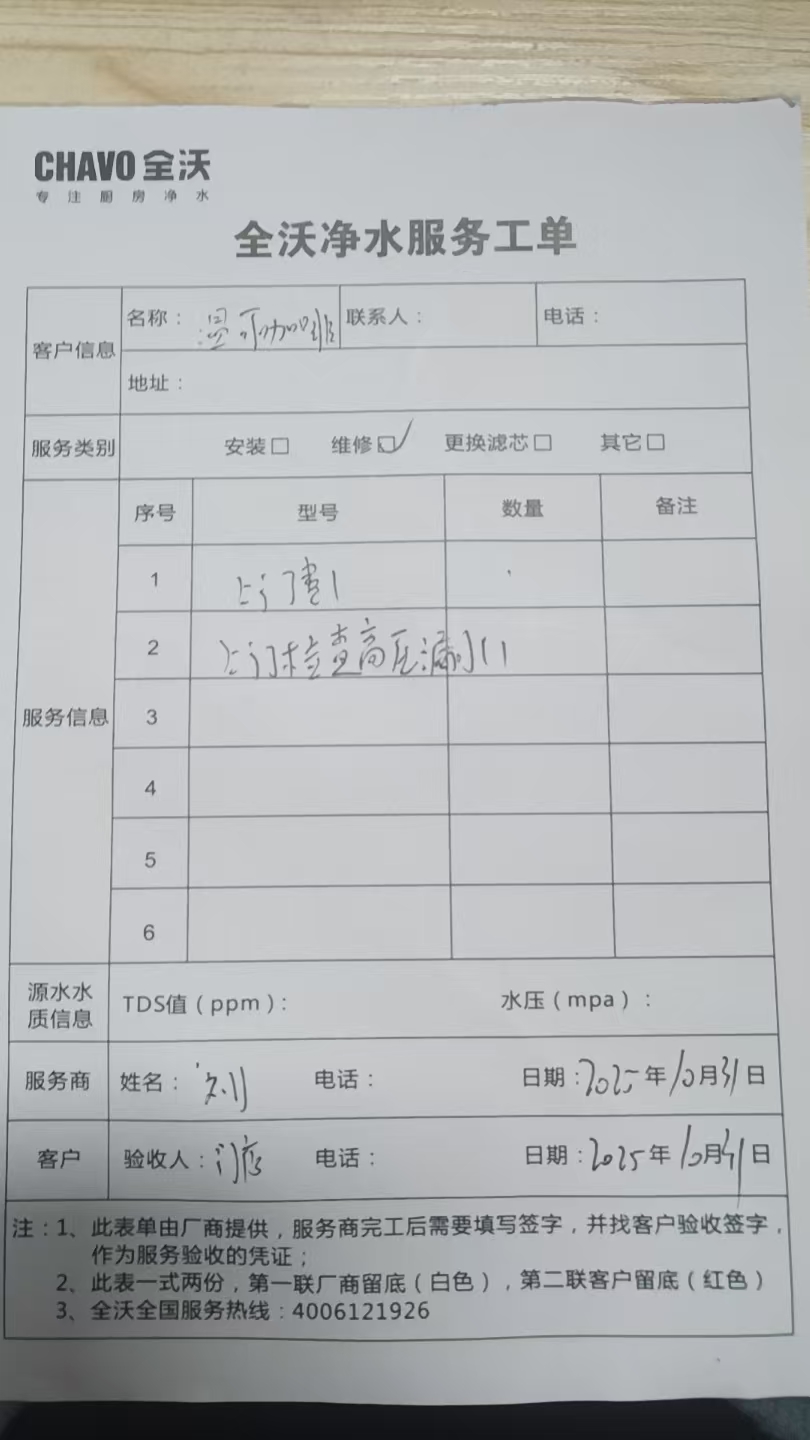 CHAVO 全沃
专注厨房净水
全沃净水服务工单
客户信息
名称： 咖啡 联系人： 电话：
地址：
服务类别 安装□ 维修□✓ 更换滤芯□ 其它□
服务信息
序号 型号 数量 备注
1 上门
2 上门检查高压漏
3
4
5
6
源水水质信息 TDS值（ppm）： 水压（mpa）：
服务商 姓名：刘 电话： 日期：2025年10月31日
客户 验收人：门店 电话： 日期：2025年10月31日
注：1、此表单由厂商提供，服务商完工后需要填写签字，并找客户验收签字，
作为服务验收的凭证；
2、此表一式两份，第一联厂商留底（白色），第二联客户留底（红色）
3、全沃全国服务热线：4006121926